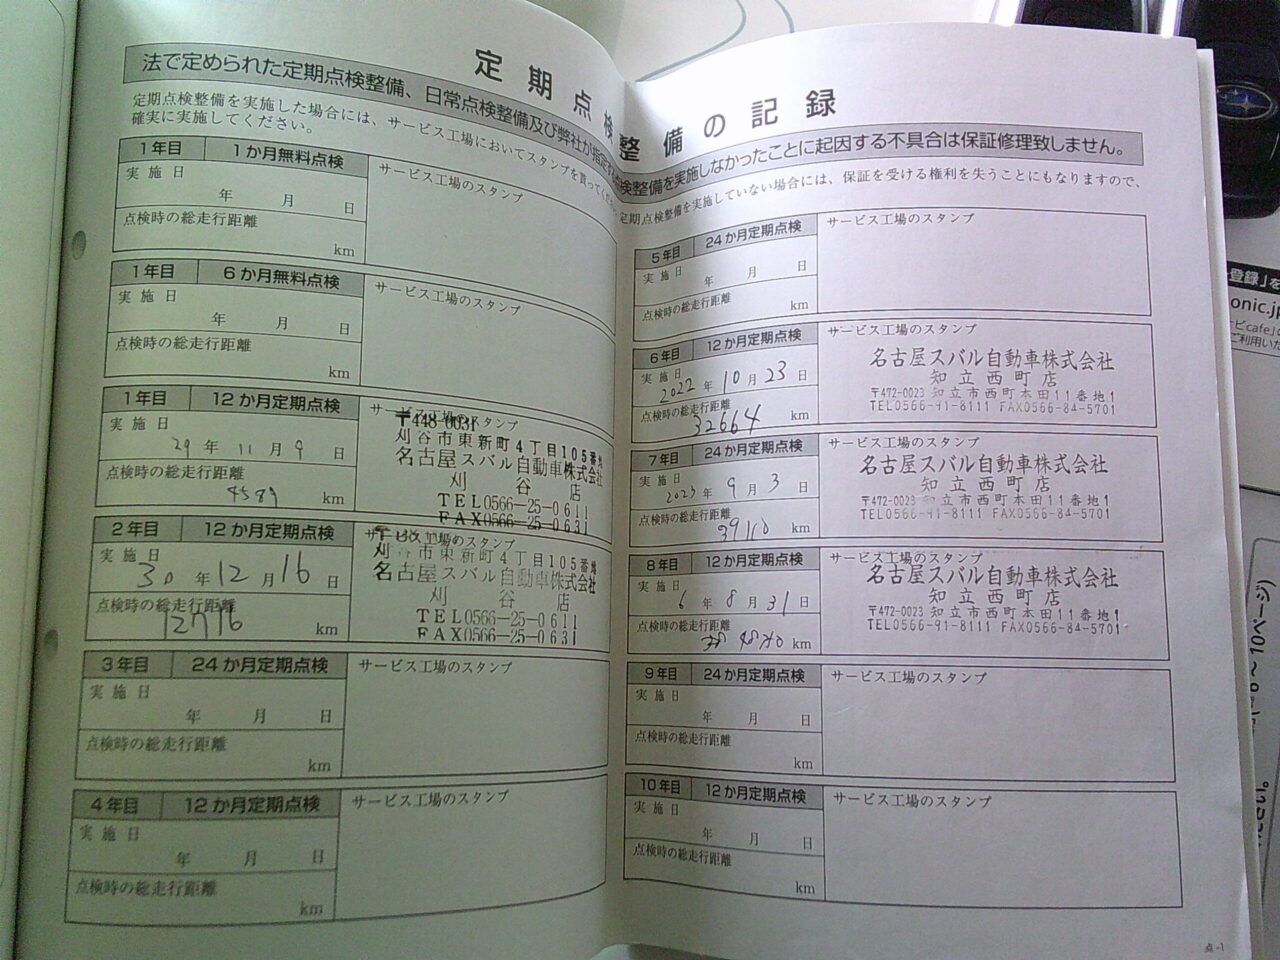 定期点検整備の記録
法で定められた定期点検整備、日常点検整備及び弊社が指定する点検整備を実施しなかったことに起因する不具合は保証修理致しません。
定期点検整備を実施した場合には、サービス工場においてスタンプを貰ってください。定期点検整備を実施していない場合には、保証を受ける権利を失うことにもなりますので、
確実に実施してください。
1年目 1か月無料点検 サービス工場のスタンプ
実施日
年 月 日
点検時の総走行距離
km
1年目 6か月無料点検 サービス工場のスタンプ
実施日
年 月 日
点検時の総走行距離
km
1年目 12か月定期点検 サービス工場のスタンプ
実施日
29年 11月 9日
点検時の総走行距離
4589 km
〒448-0031
刈谷市東新町4丁目105番地
名古屋スバル自動車株式会社
刈谷店
TEL0566-25-0611
FAX0566-25-0631
2年目 12か月定期点検 サービス工場のスタンプ
実施日
30年 12月 16日
点検時の総走行距離
12716 km
刈谷市東新町4丁目105番地
名古屋スバル自動車株式会社
刈谷店
TEL0566-25-0611
FAX0566-25-0631
3年目 24か月定期点検 サービス工場のスタンプ
実施日
年 月 日
点検時の総走行距離
km
4年目 12か月定期点検 サービス工場のスタンプ
実施日
年 月 日
点検時の総走行距離
km
5年目 24か月定期点検 サービス工場のスタンプ
実施日
年 月 日
点検時の総走行距離
km
6年目 12か月定期点検 サービス工場のスタンプ
実施日
2022年 10月 23日
点検時の総走行距離
32664 km
名古屋スバル自動車株式会社
知立西町店
〒472-0023 知立市西町本田11番地1
TEL0566-91-8111 FAX0566-84-5701
7年目 24か月定期点検 サービス工場のスタンプ
実施日
2023年 9月 3日
点検時の総走行距離
39110 km
名古屋スバル自動車株式会社
知立西町店
〒472-0023 知立市西町本田11番地1
TEL0566-91-8111 FAX0566-84-5701
8年目 12か月定期点検 サービス工場のスタンプ
実施日
6年 8月 31日
点検時の総走行距離
km
名古屋スバル自動車株式会社
知立西町店
〒472-0023 知立市西町本田11番地1
TEL0566-91-8111 FAX0566-84-5701
9年目 24か月定期点検 サービス工場のスタンプ
実施日
年 月 日
点検時の総走行距離
km
10年目 12か月定期点検 サービス工場のスタンプ
実施日
年 月 日
点検時の総走行距離
km
点-1
登録」を
onic.jp
ビcafe」の
ご利用いた
10ページ)